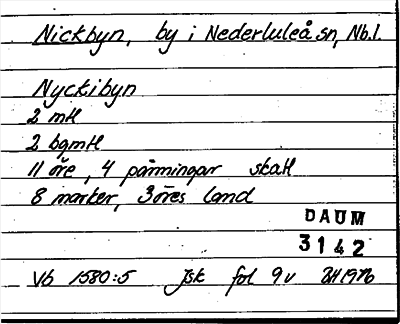 Nickbyn, by i Nederluleå sn, Nb.l.
Nyckibyn
2 mtl
2 bgmtl
11 öre, 4 pänningar skatt
8 marker, 3 öres land
DAUM
3142
Vb 1580:5 Jsk fol 9v BH 1976